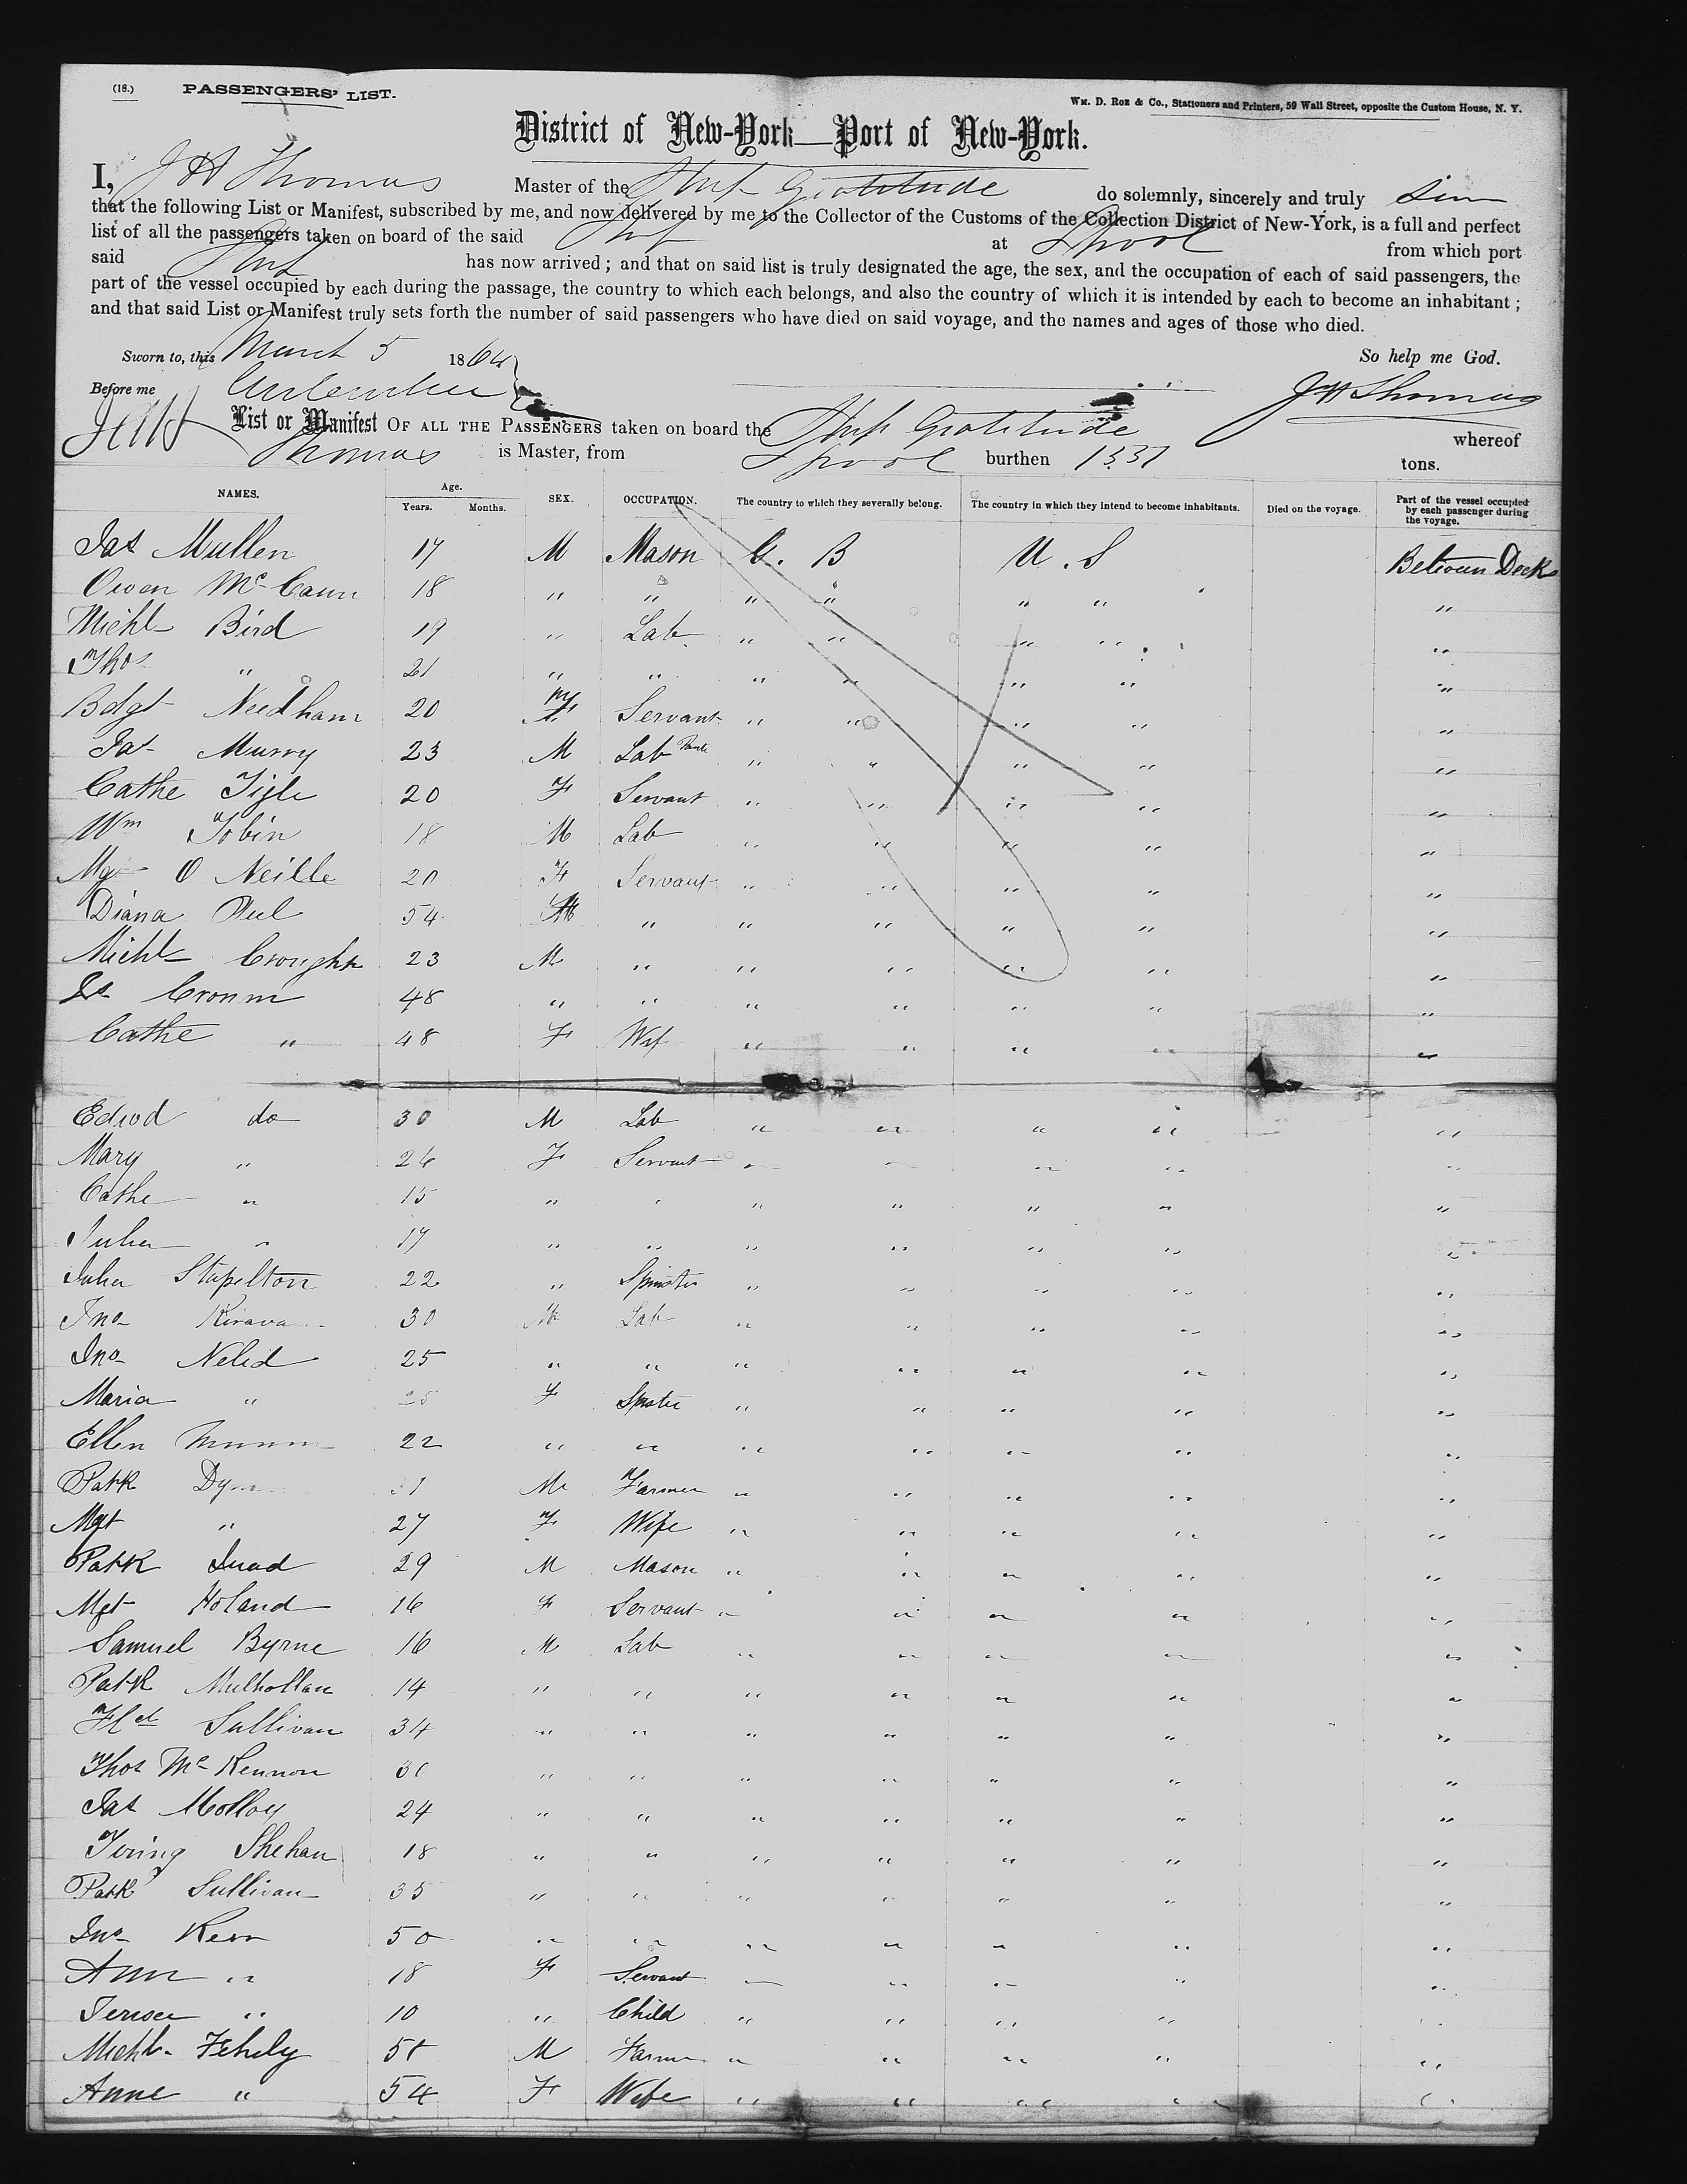 (18.) PASSENGERS' LIST.
Wm. D. Roe & Co., Stationers and Printers, 59 Wall Street, opposite the Custom House, N. Y.
District of New-York—Port of New-York.
I, J H Thomas Master of the Ship Gratitude do solemnly, sincerely and truly
that the following List or Manifest, subscribed by me, and now delivered by me to the Collector of the Customs of the Collection District of New-York, is a full and perfect
list of all the passengers taken on board of the said Ship at Lpool from which port
said Ship has now arrived; and that on said list is truly designated the age, the sex, and the occupation of each of said passengers, the
part of the vessel occupied by each during the passage, the country to which each belongs, and also the country of which it is intended by each to become an inhabitant;
and that said List or Manifest truly sets forth the number of said passengers who have died on said voyage, and the names and ages of those who died.
Sworn to, this March 5 1864 So help me God.
Before me J H Thomas
List or Manifest OF ALL THE PASSENGERS taken on board the Ship Gratitude whereof
Thomas is Master, from Lpool burthen 1337 tons.
NAMES. Age. Years. Months. SEX. OCCUPATION. The country to which they severally belong. The country in which they intend to become inhabitants. Died on the voyage. Part of the vessel occupied by each passenger during the voyage.
Jas Mullen 17 M Mason G. B U. S Between Decks
Owen McCann 18 " " " " " " "
Michl Bird 19 " Lab " " " " "
Thos " 21 " " " " " " "
Bdgt Needham 20 F Servant " " " " "
Pat Murry 23 M Lab " " " " "
Cathe Tigle 20 F Servant " " " " "
Wm Tobin 18 M Lab " " " " "
Mgt O Neille 20 F Servant " " " " "
Diana 54 " " " " " "
Michl 23 M " " " " " "
Cronin 48 " " " " " " "
Cathe " 48 F Wif " " " " "
Edwd do 30 M Lab " " " " "
Mary " 26 F Servant " " " " "
Cathe " 15 " " " " " " "
Julia " 17 " " " " " " "
Julia Stapelton 22 " Spinster " " " " "
Jno 30 M Lab " " " " "
Jno Nelid 25 " " " " " " "
Maria " 25 F " " " " "
Ellen 22 " " " " " " "
Patk Farmer " " " " "
Mgt " 27 F Wife " " " " "
Patk 29 M Mason " " " " "
Mgt Holand 16 F Servant " " " " "
Samuel Byrne 16 M Lab " " " " "
Patk Mulhollan 14 " " " " " " "
Sullivan 34 " " " " " " "
Thos McKennon 30 " " " " " " "
Jas Molloy 24 " " " " " " "
Shehan 18 " " " " " " "
Patk Sullivan 35 " " " " " " "
Jno Kerr 50 " " " " " " "
Ann " 18 F Servant " " " " "
" 10 " Child " " " " "
Michl Fehely M Farmer " " " " "
Anne " 54 F Wife " " " " "